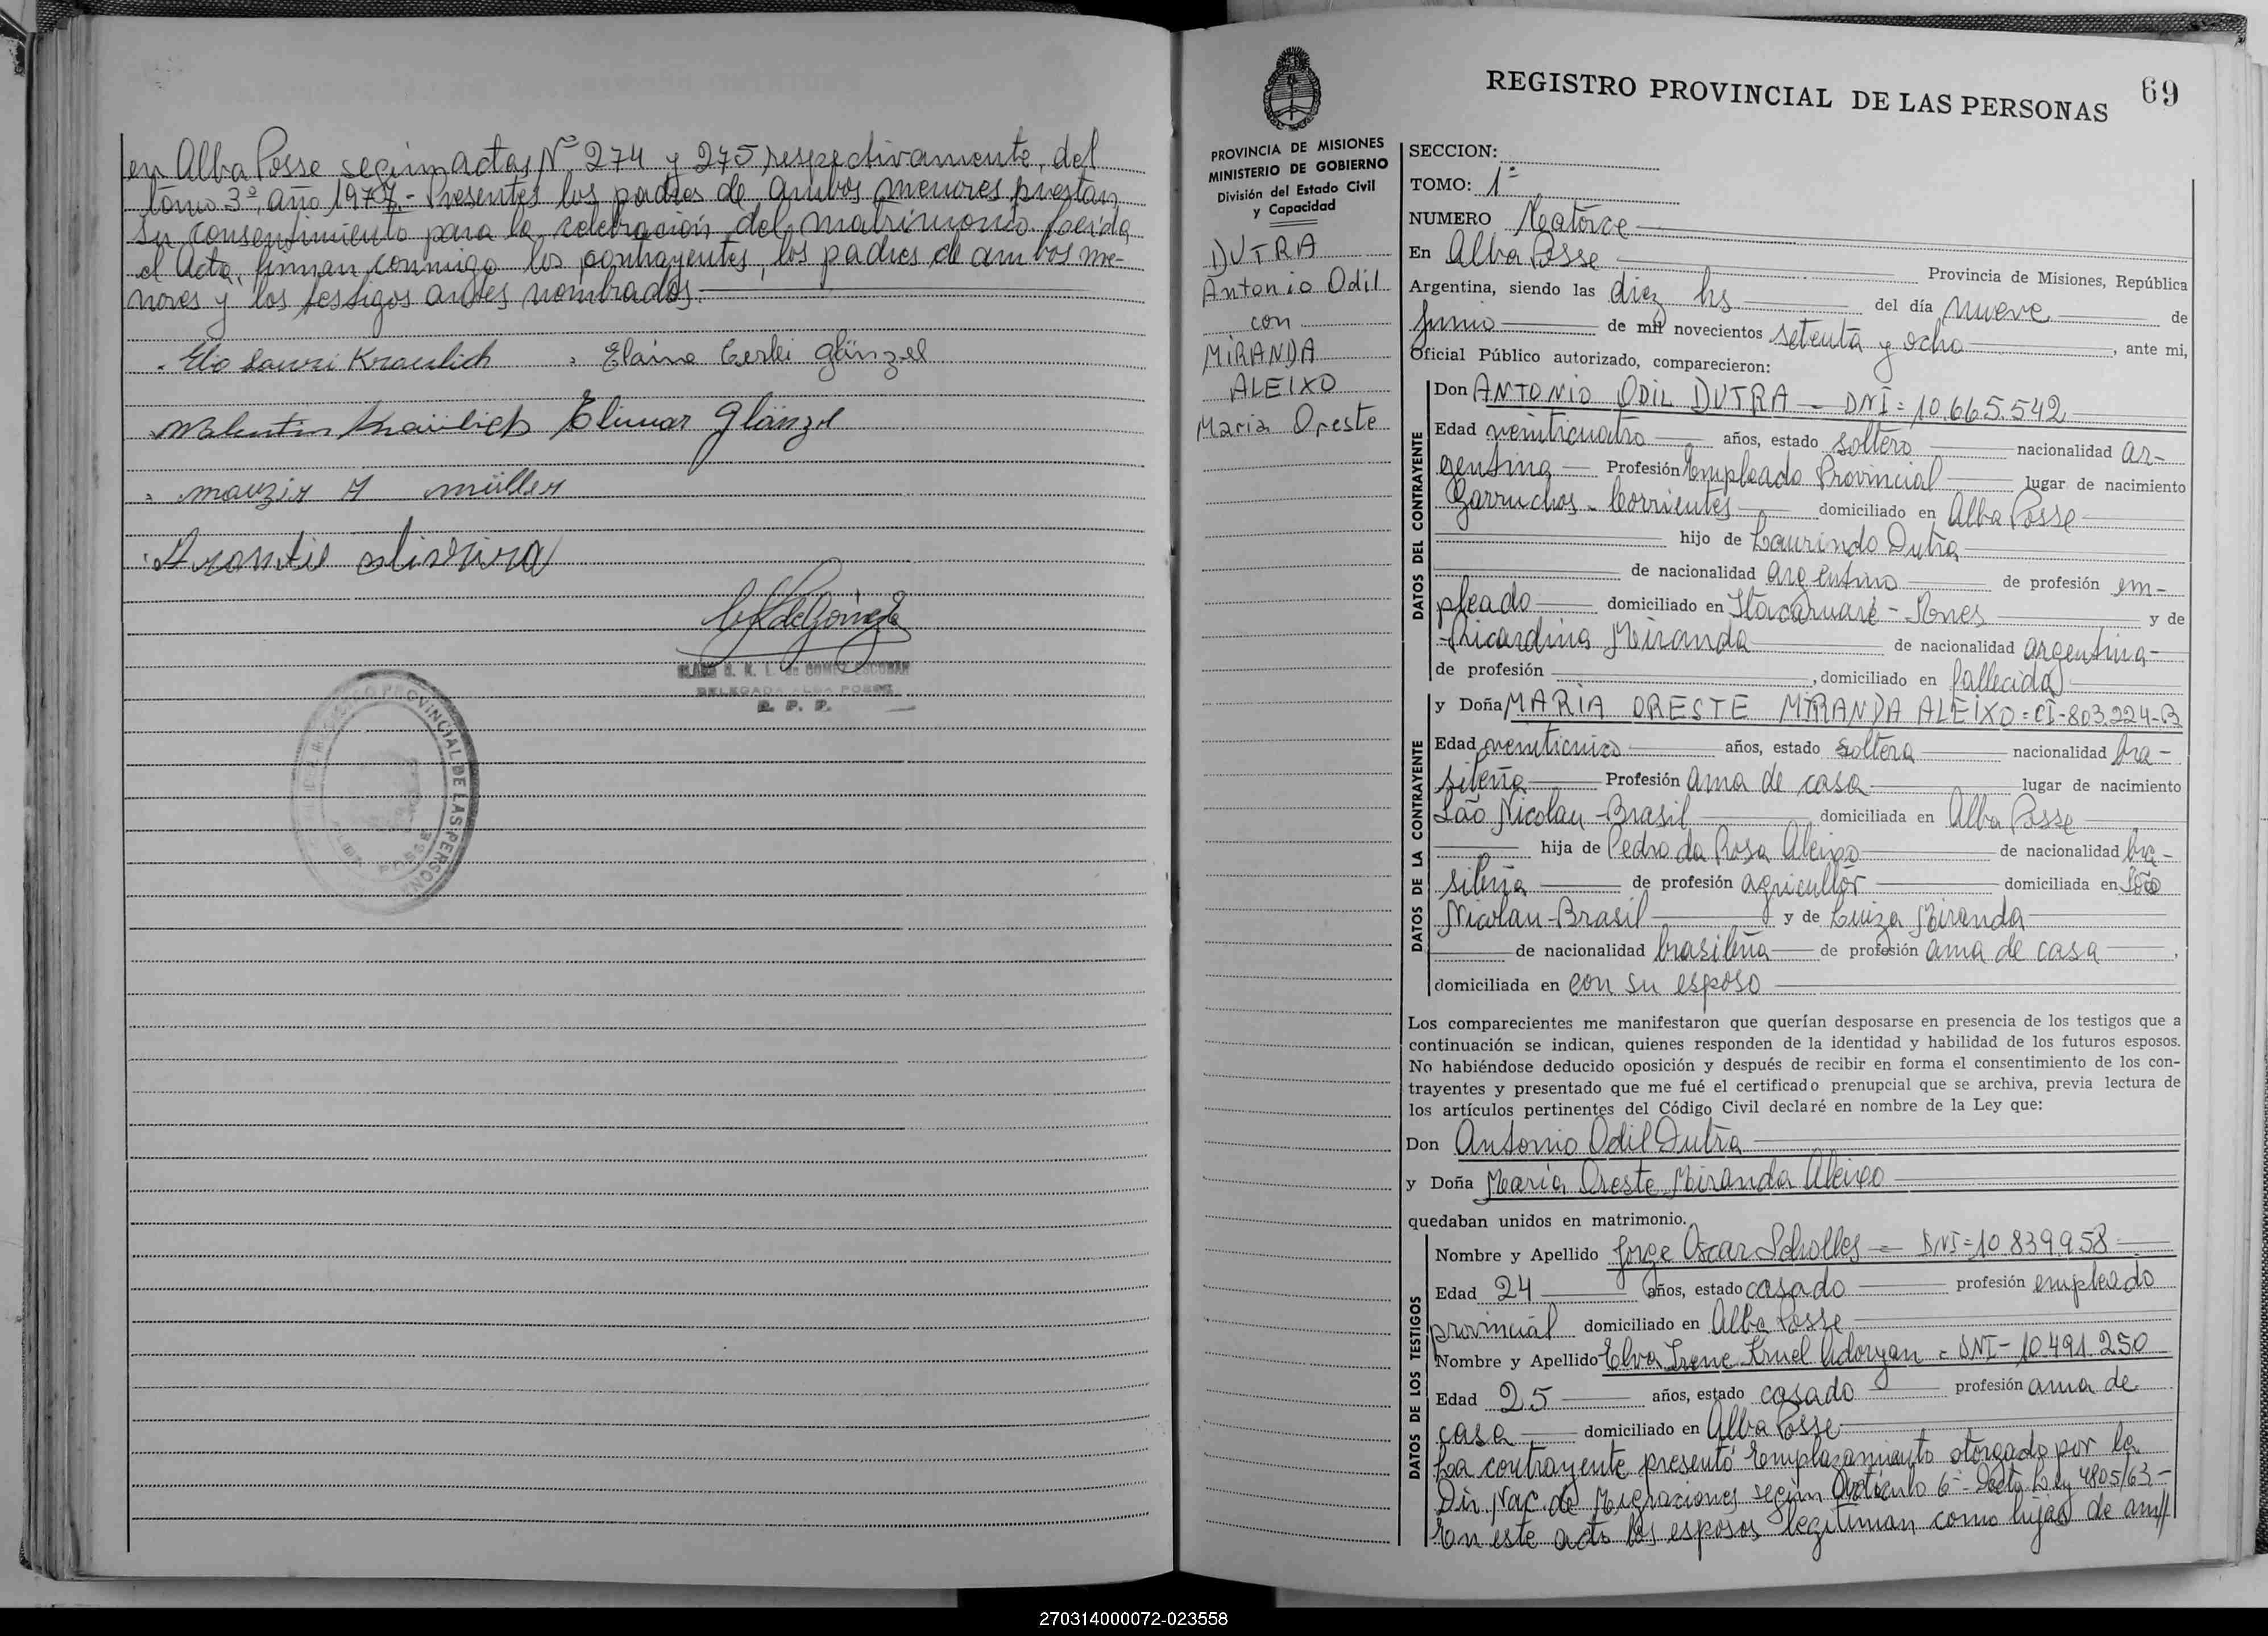 en Alba Posse según actas Nº 274 y 275 respectivamente, del
tomo 3º, año 1977.- Presentes los padres de ambos menores prestan
su consentimiento para la celebración del matrimonio. Leída
el Acta, firman conmigo los contrayentes, los padres de ambos me-
nores y los testigos antes nombrados.
Elaine Cerlei Glänzel
Elimar Glänzel
müller
CLARA G. K. L. de GOMEZ ESCOBAR
DELEGADA ALBA POSSE
R. P. P.
REGISTRO PROVINCIAL DE LAS PERSONAS
ALBA POSSE
REGISTRO PROVINCIAL DE LAS PERSONAS
69
PROVINCIA DE MISIONES
MINISTERIO DE GOBIERNO
División del Estado Civil
y Capacidad
DUTRA
Antonio Odil
con
MIRANDA
ALEIXO
Maria Oreste
SECCION:
TOMO: 1º
NUMERO Catorce
En Alba Posse Provincia de Misiones, República
Argentina, siendo las diez hs del día nueve de
Junio de mil novecientos setenta y ocho, ante mi,
Oficial Público autorizado, comparecieron:
DATOS DEL CONTRAYENTE
Don ANTONIO ODIL DUTRA - DNI = 10.665.542
Edad veinticuatro años, estado soltero nacionalidad ar-
gentina Profesión Empleado Provincial lugar de nacimiento
Garruchos - Corrientes domiciliado en Alba Posse
hijo de Laurindo Dutra
de nacionalidad argentino de profesión em-
pleado domiciliado en Itacaruaré - Mnes y de
Ricardina Miranda de nacionalidad argentina
de profesión , domiciliado en fallecida
DATOS DE LA CONTRAYENTE
y Doña MARIA ORESTE MIRANDA ALEIXO = CI-803.224-B
Edad veinticinco años, estado soltera nacionalidad bra-
sileña Profesión ama de casa lugar de nacimiento
São Nicolau - Brasil domiciliada en Alba Posse
hija de Pedro da Rosa Aleixo de nacionalidad bra-
sileña de profesión agricultor domiciliada en São
Nicolau - Brasil y de Luiza Miranda
de nacionalidad brasileña de profesión ama de casa ,
domiciliada en con su esposo
Los comparecientes me manifestaron que querían desposarse en presencia de los testigos que a
continuación se indican, quienes responden de la identidad y habilidad de los futuros esposos.
No habiéndose deducido oposición y después de recibir en forma el consentimiento de los con-
trayentes y presentado que me fué el certificado prenupcial que se archiva, previa lectura de
los artículos pertinentes del Código Civil declaré en nombre de la Ley que:
Don Antonio Odil Dutra
y Doña Maria Oreste Miranda Aleixo
quedaban unidos en matrimonio.
DATOS DE LOS TESTIGOS
Nombre y Apellido Jorge Oscar Scholles = DNI = 10.839.958
Edad 24 años, estado casado profesión empleado
provincial domiciliado en Alba Posse
Nombre y Apellido Elva Irene Kruel Adoryan = DNI - 10.491.250
Edad 25 años, estado casado profesión ama de
casa domiciliado en Alba Posse
La contrayente presentó Emplazamiento otorgado por la
Dir. Nac. de Migraciones según Artículo 6º - Decto Ley 4805/63 -
En este acto los esposos legitiman como hijas de am//
270314000072-023558